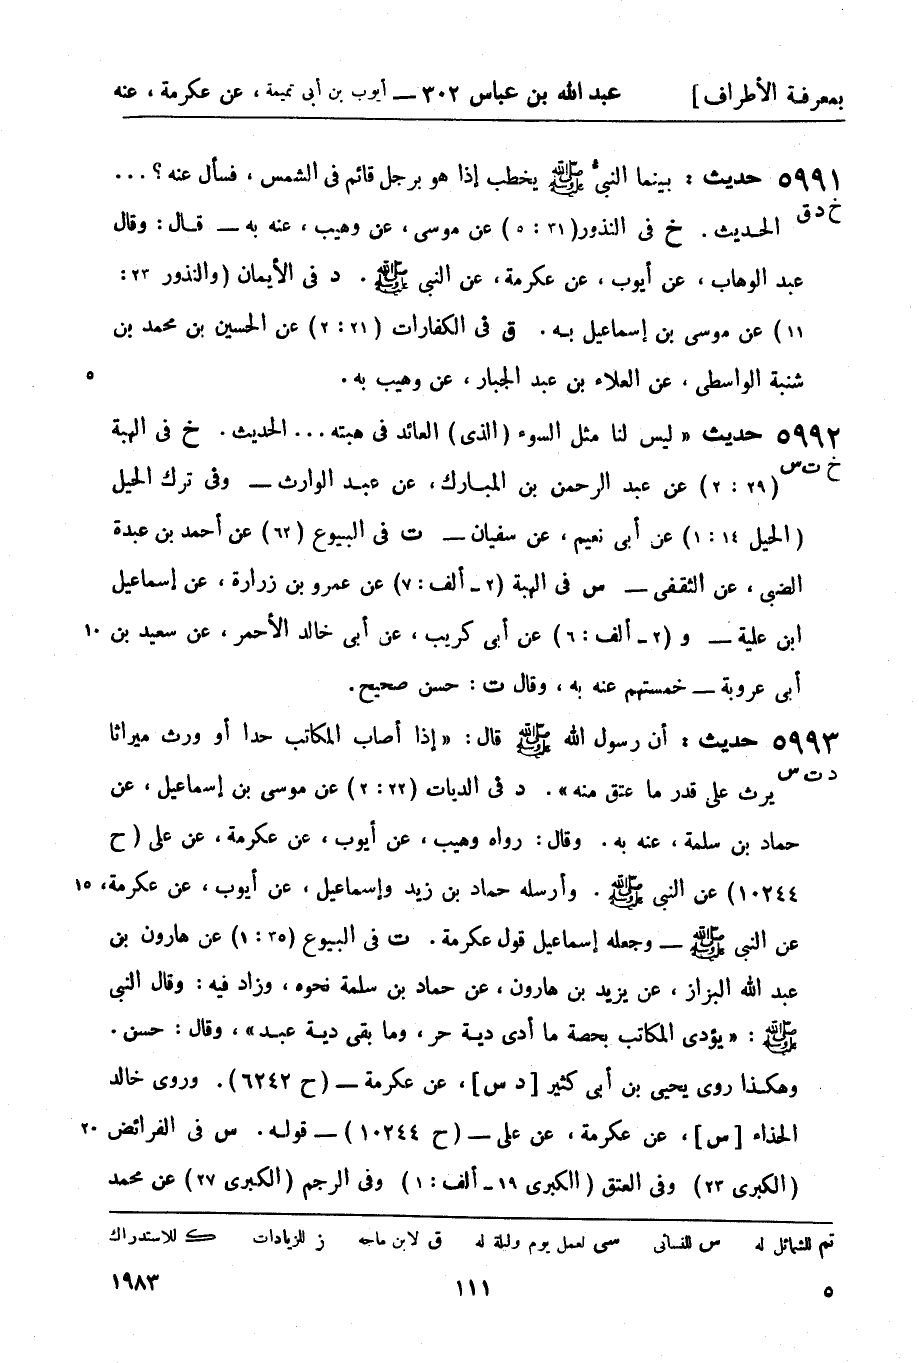 بمعرفة الأطراف] عبد الله بن عباس ٣٠٢ — أيوب بن أبى تميمة ، عن عكرمة ، عنه
٥٩٩١ حديث : بينما النبيُّ ﷺ يخطب إذا هو برجل قائم فى الشمس ، فسأل عنه ؟ ...
خ د ق
الحديث . خ فى النذور (٣١ : ٥) عن موسى ، عن وهيب ، عنه به — قال : وقال
عبد الوهاب ، عن أيوب ، عن عكرمة ، عن النبى ﷺ . د فى الأيمان (والنذور ٢٣ :
١١) عن موسى بن إسماعيل به . ق فى الكفارات (٢١ : ٢) عن الحسين بن محمد بن
شنبة الواسطى ، عن العلاء بن عبد الجبار ، عن وهيب به . ٥
٥٩٩٢ حديث « ليس لنا مثل السوء (الذى) العائد فى هبته ... الحديث . خ فى الهبة
خ ت س
(٢٩ : ٢) عن عبد الرحمن بن المبارك ، عن عبد الوارث — وفى ترك الحيل
(الحيل ١٤ : ١) عن أبى نعيم ، عن سفيان — ت فى البيوع (٦٢) عن أحمد بن عبدة
الضبى ، عن الثقفى — س فى الهبة (٢ ـ ألف : ٧) عن عمرو بن زرارة ، عن إسماعيل
ابن علية — و (٢ ـ ألف : ٦) عن أبى كريب ، عن أبى خالد الأحمر ، عن سعيد بن ١٠
أبى عروبة — خمستهم عنه به ، وقال ت : حسن صحيح .
٥٩٩٣ حديث : أن رسول الله ﷺ قال : « إذا أصاب المكاتب حدا أو ورث ميراثا
د ت س
يرث على قدر ما عتق منه » . د فى الديات (٢٢ : ٢) عن موسى بن إسماعيل ، عن
حماد بن سلمة ، عنه به . وقال : رواه وهيب ، عن أيوب ، عن عكرمة ، عن على (ح
١٠٢٤٤) عن النبى ﷺ . وأرسله حماد بن زيد وإسماعيل ، عن أيوب ، عن عكرمة ، ١٥
عن النبى ﷺ — وجعله إسماعيل قول عكرمة . ت فى البيوع (٣٥ : ١) عن هارون بن
عبد الله البزاز ، عن يزيد بن هارون ، عن حماد بن سلمة نحوه ، وزاد فيه : وقال النبى
ﷺ : « يؤدى المكاتب بحصة ما أدى دية حر ، وما بقى دية عبد » ، وقال : حسن .
وهكذا روى يحيى بن أبى كثير [د س] ، عن عكرمة — (ح ٦٢٤٢) . وروى خالد
الحذاء [س] ، عن عكرمة ، عن على — (ح ١٠٢٤٤) — قوله . س فى الفرائض ٢٠
(الكبرى ٢٣) وفى العتق (الكبرى ١٩ ـ ألف : ١) وفى الرجم (الكبرى ٢٧) عن محمد
تم للشمائل له س للنسائى سى لعمل يوم وليلة له ق لابن ماجه ز للزيادات ك للاستدراك
٥ ١١١ ١٩٨٣